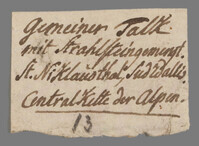 Gemeiner Talk
mit Strahlsteingemengt.
St. Niklausthal, Süd Wallis
Centralkette der Alpen.
13